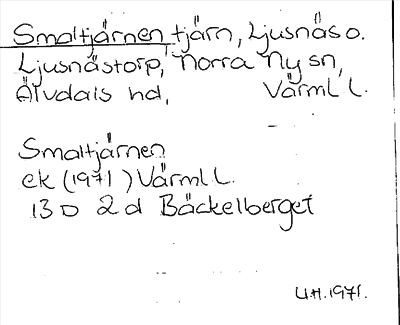 Smaltjärnen tjärn, Ljusnäs o.
Ljusnästorp, Norra Ny sn,
Älvdals hd, Värml l.
Smaltjärnen
ek (1971) Värml L.
13 D 2 d Bäckelberget
U.H. 1971.